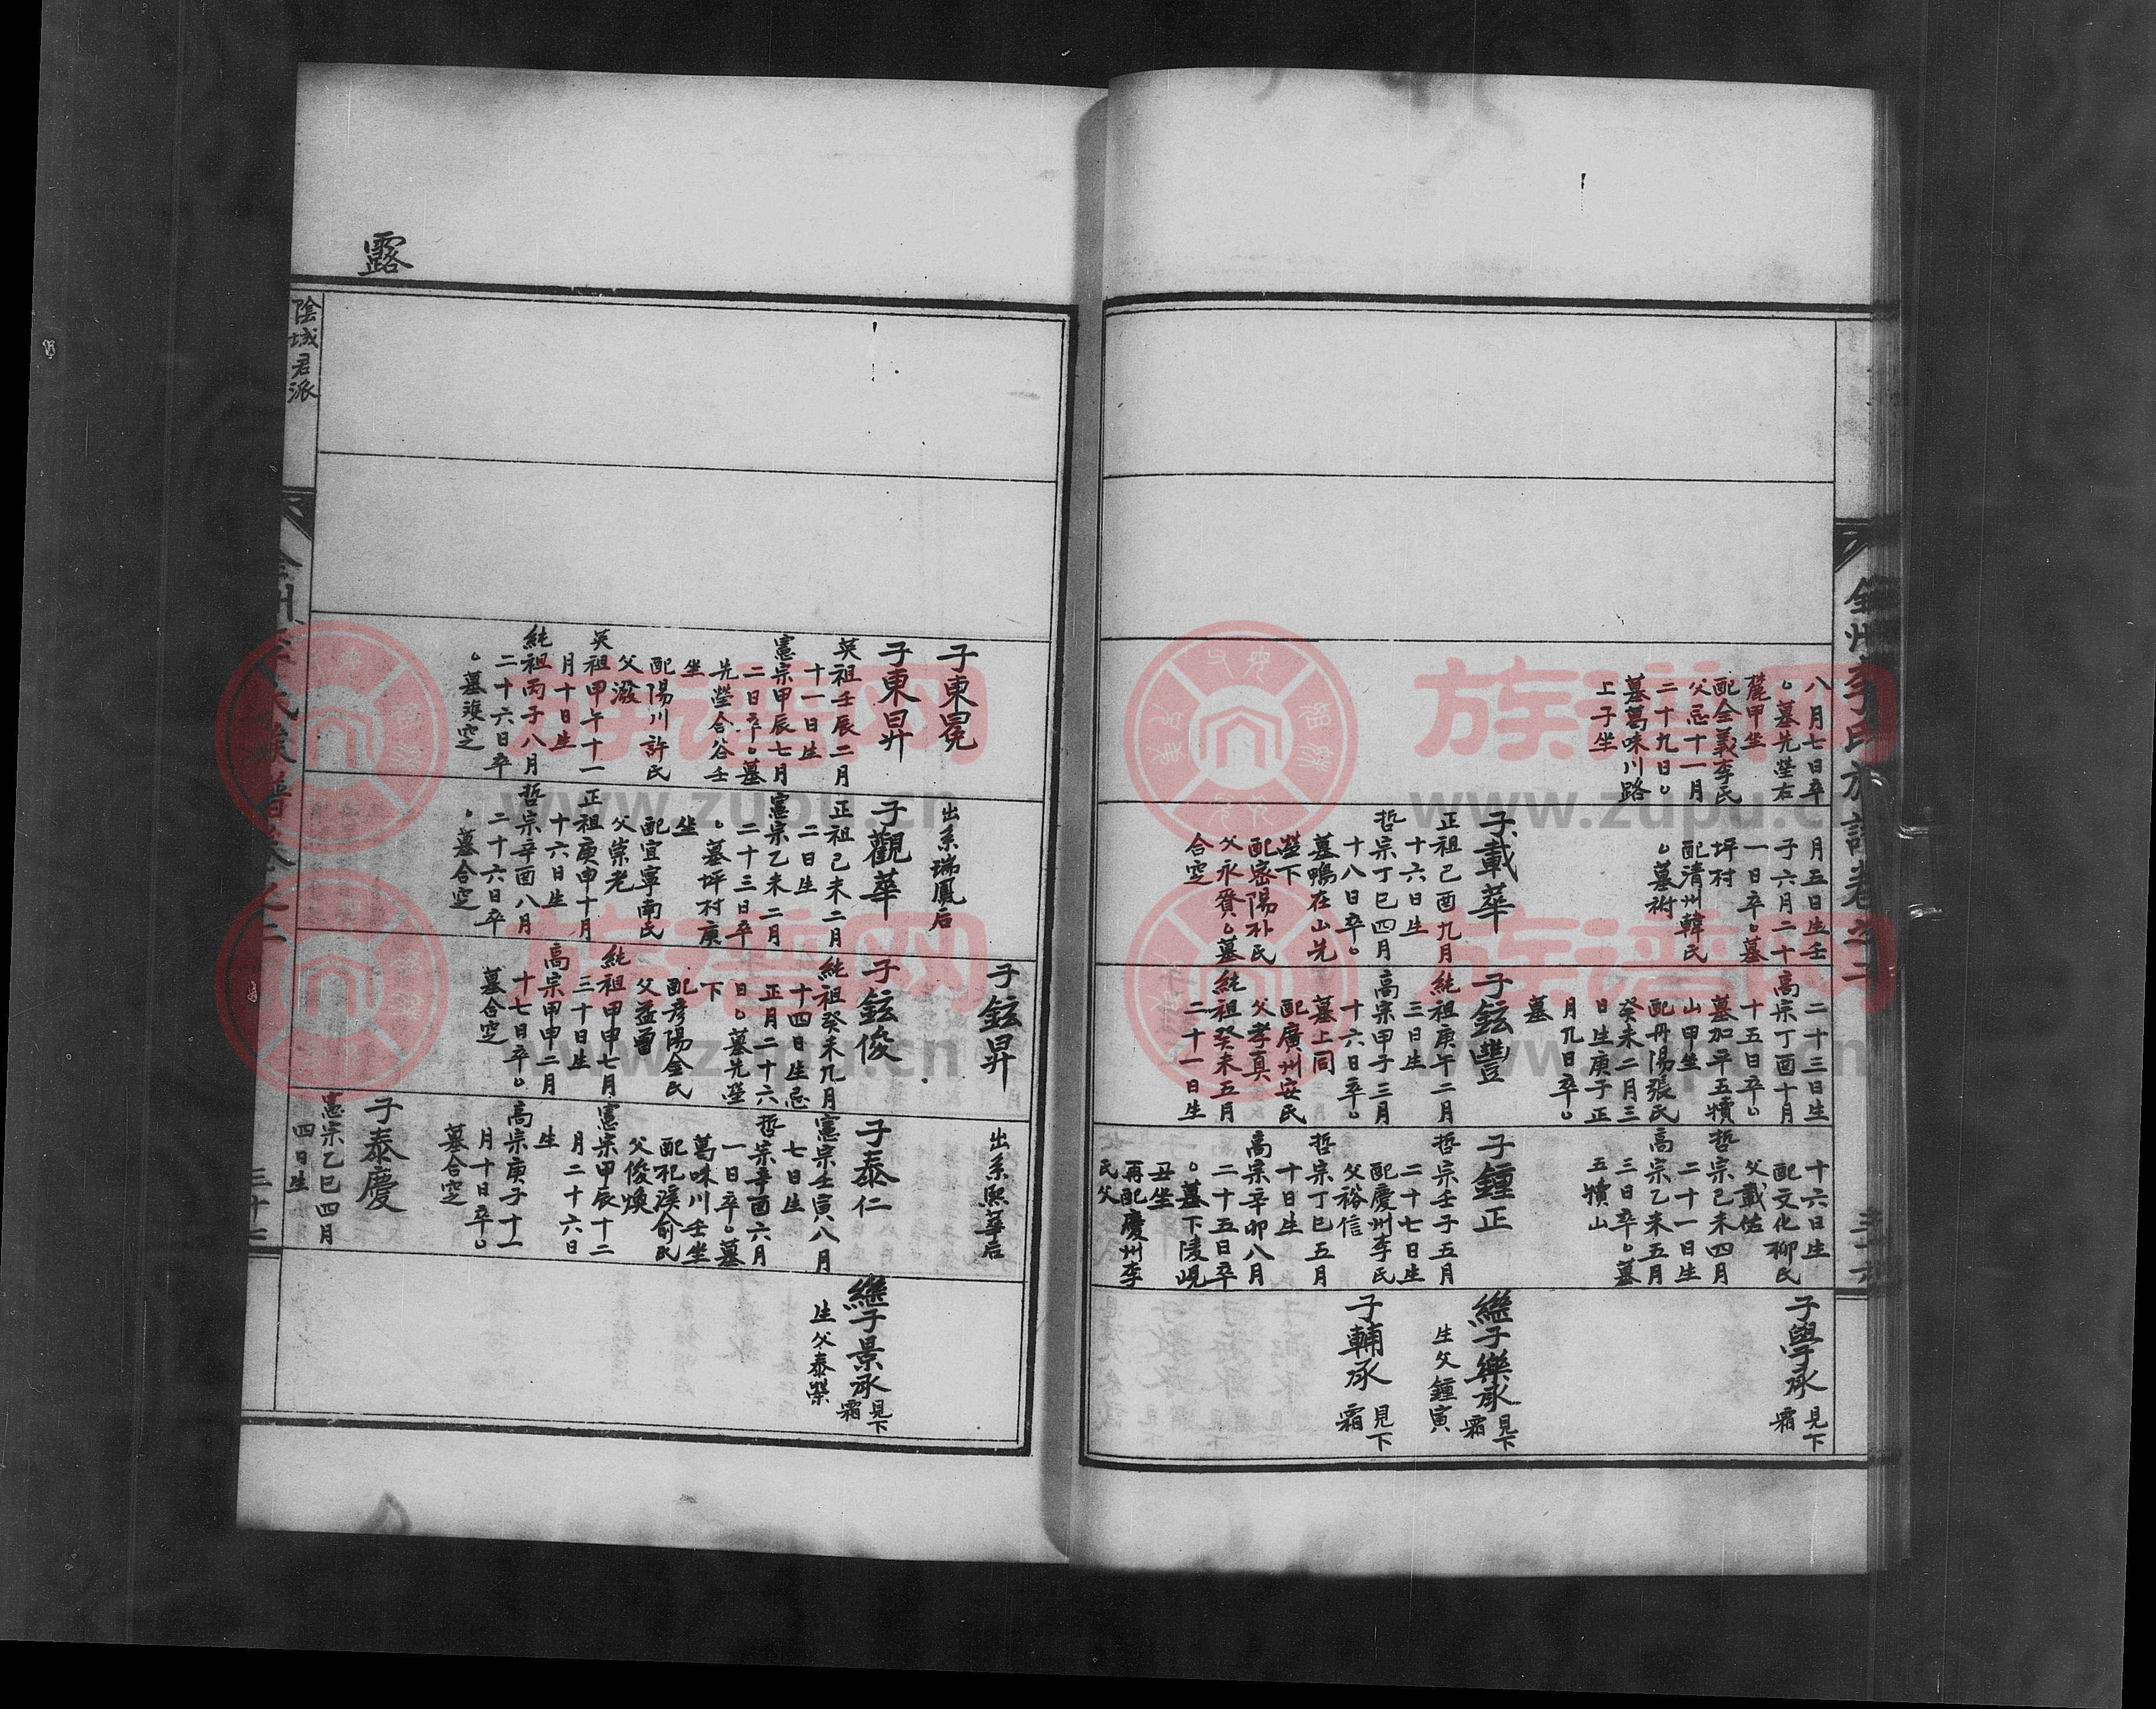 全州李氏族譜卷之二
三十六
八月七日卒
。墓先塋右
麓甲坐
配全義李氏
父忌十一月
二十九日。
墓葛味川路
上子坐
月五日生壬
子六月二十
一日卒。墓
坪村
配清州韓氏
。墓祔
子載華
正祖己酉九月
十六日生
哲宗丁巳四月
十八日卒。
墓鴨在山先
塋下
配密陽朴氏
父永賚。墓
合窆
二十三日生
高宗丁酉十月
十五日卒。
墓加平五犢
山甲坐
配丹陽張氏
癸未二月三
日生庚子正
月九日卒。
墓
子鉉豐
純祖庚午二月
三日生
高宗甲子三月
十六日卒。
墓上同
配廣州安氏
父孝真
純祖癸未五月
二十一日生
十六日生
配文化柳氏
父戴佑
哲宗己未四月
二十一日生
高宗乙未五月
三日卒。墓
五犢山
子鍾正
哲宗壬子五月
二十七日生
配慶州李氏
父裕信
哲宗丁巳五月
十日生
高宗辛卯八月
二十五日卒
。墓下陵峴
丑坐
再配慶州李
氏父
子學承
見下
霜
繼子樂承
見下
霜
生父鍾寅
子輔承
見下
霜
子東冕
子東昇
英祖壬辰二月
十一日生
憲宗甲辰七月
二日卒。墓
先塋合谷壬
坐
配陽川許氏
父潑
英祖甲午十一
月十日生
純祖丙子八月
二十六日卒
。墓複窆
出系瑞鳳后
子觀華
正祖己未二月
二日生
憲宗乙未二月
二十三日卒
。墓坪村庚
坐
配宜寧南氏
父崇老
正祖庚申十月
十六日生
哲宗辛酉八月
二十六日卒
。墓合窆
子鉉昇
子鉉俊
純祖癸未九月
十四日生忌
正月二十六
日。墓先塋
下
配彥陽金氏
父益曾
純祖甲申七月
三十日生
高宗甲申二月
十七日卒。
墓合窆
出系熙華后
子泰仁
憲宗壬寅八月
七日生
哲宗辛酉六月
一日卒。墓
葛味川壬坐
配杞溪俞氏
父俊煥
憲宗甲辰十二
月二十六日
生
高宗庚子十一
月十日卒。
墓合窆
子泰慶
憲宗乙巳四月
四日生
繼子景承
見下
霜
生父泰榮
露
陰城君派
三十七
族谱网
www.zupu.cn
族谱网
www.zupu.cn
族谱网
www.zupu.cn
族谱网
www.zupu.cn